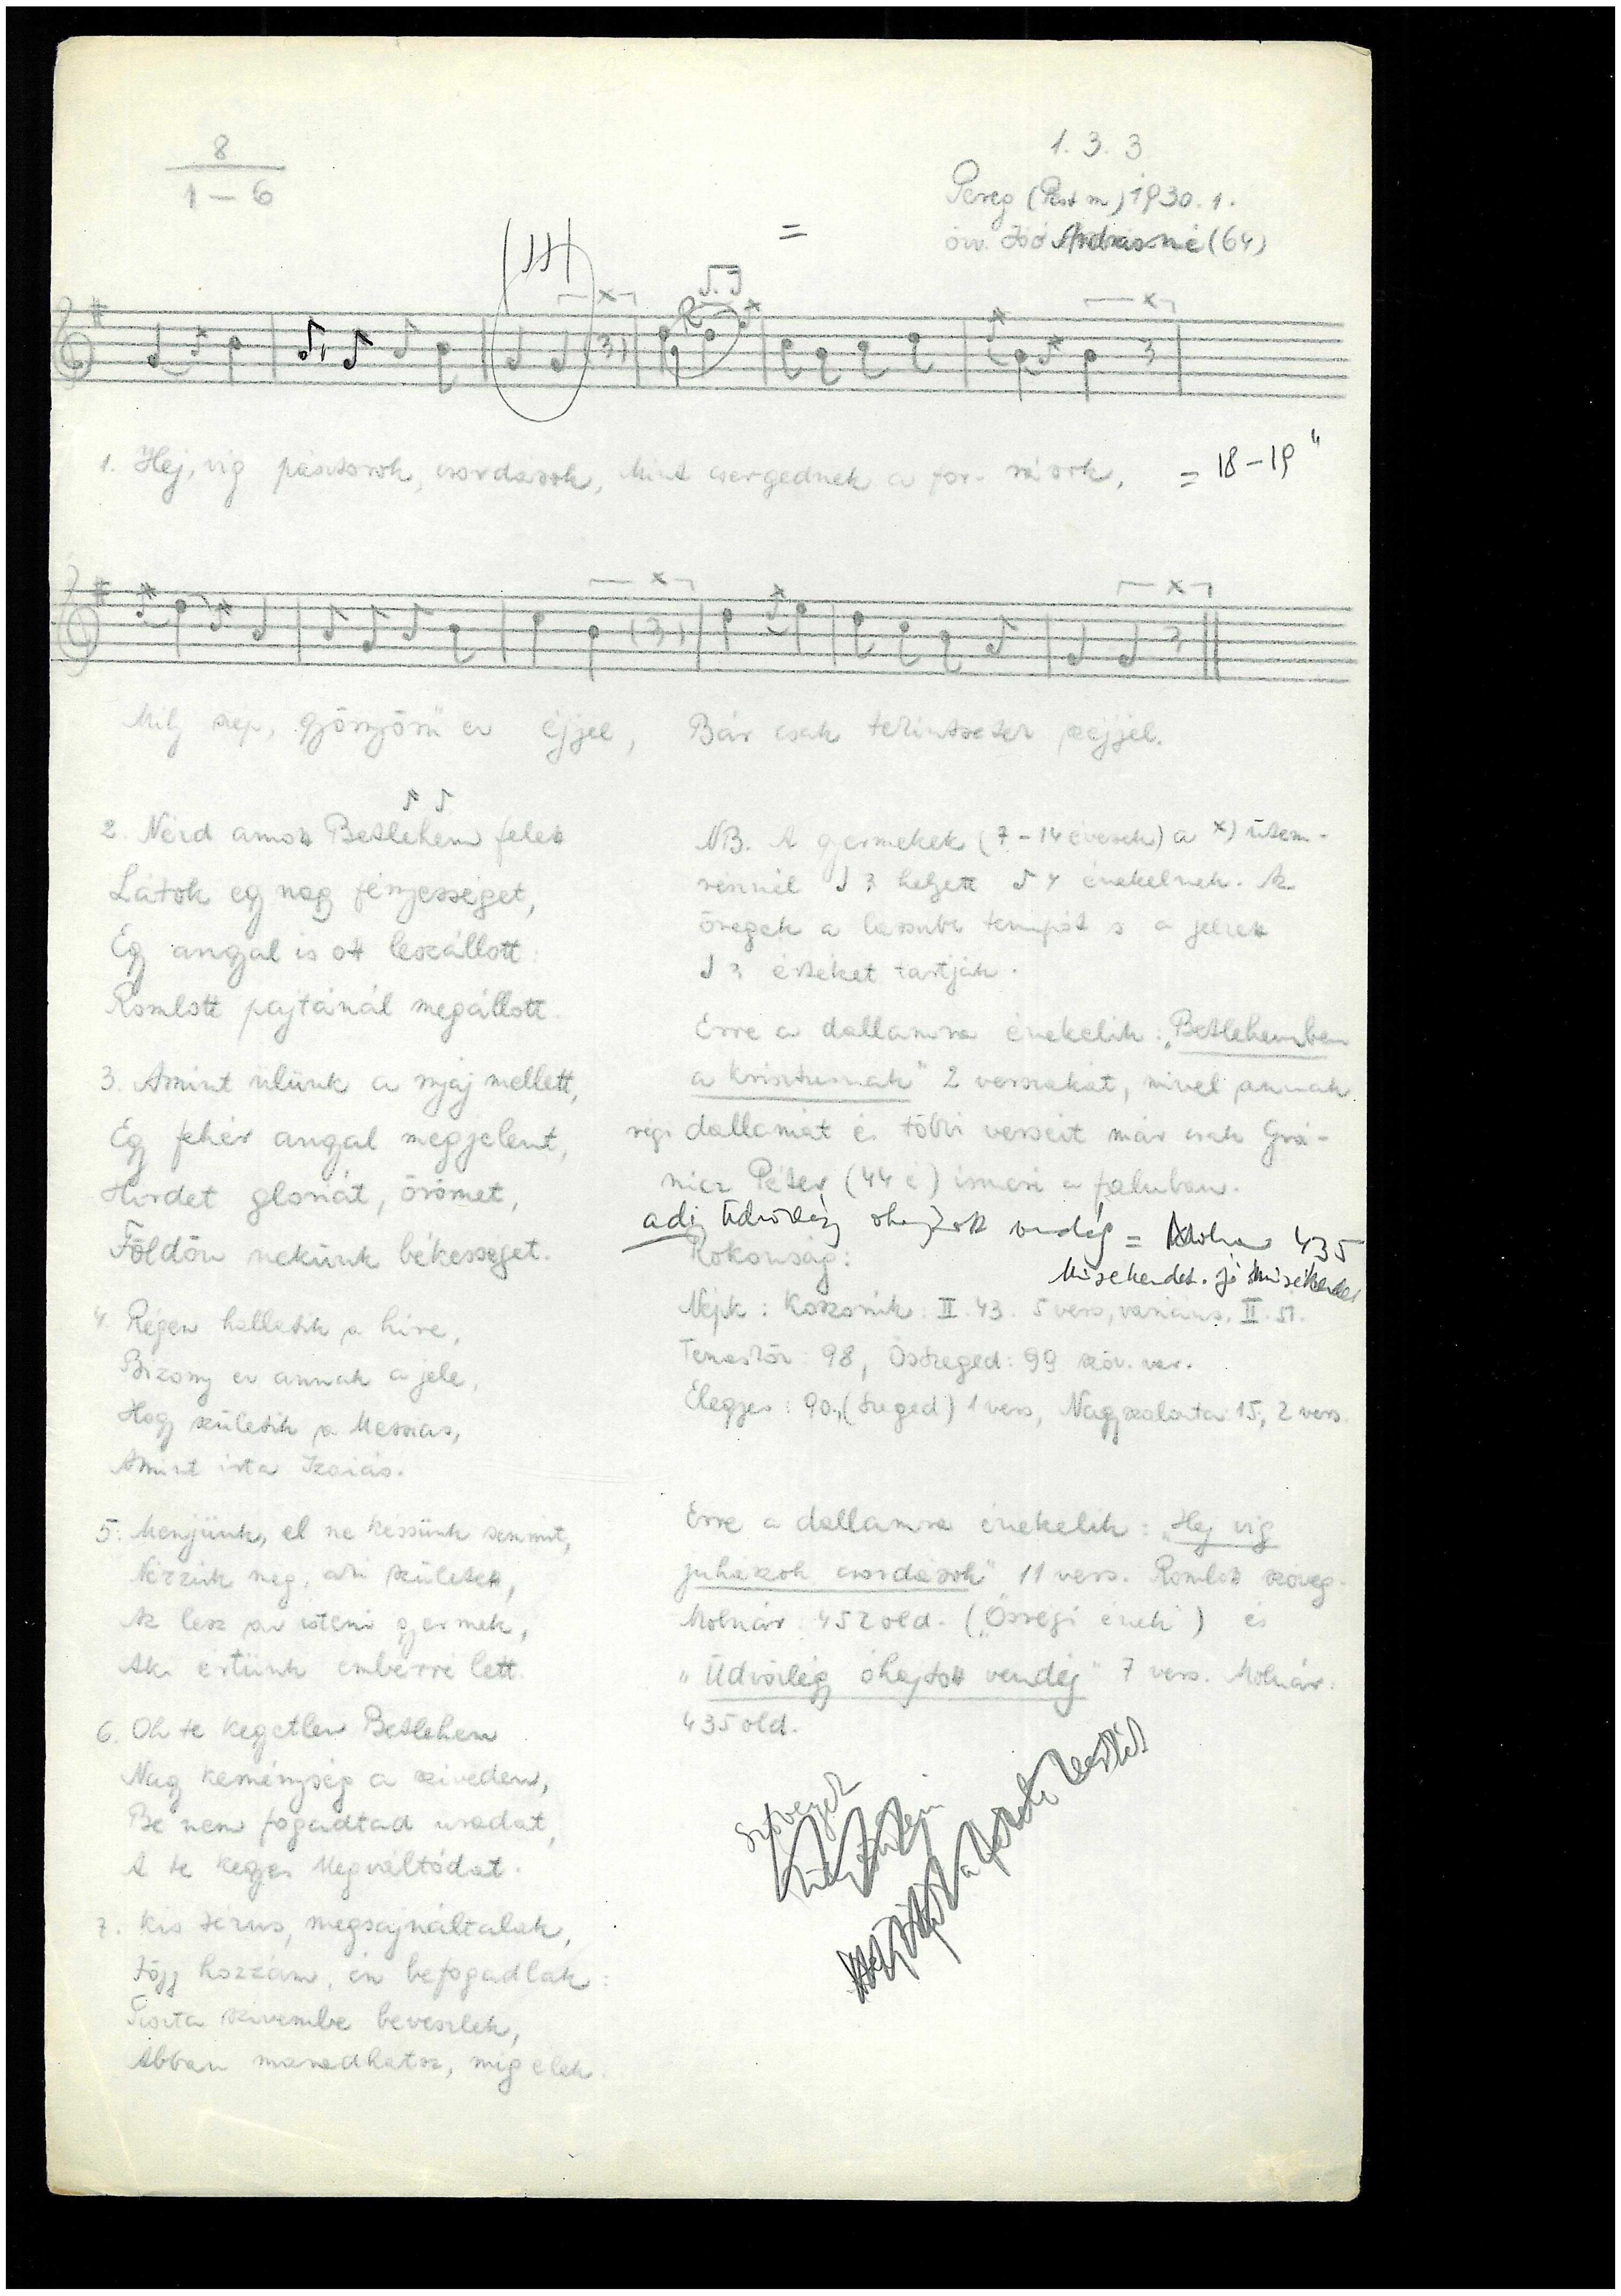 8
1 – 6
1. 3. 3
Pereg (Pest m) 1930. 1.
özv. Joó Andrásné (64)
=
1. Hej, vig pásztorok, csordások, Mint csergednek a for- rások,
= 18–19"
Mily szep, gyönyörü ez éjjel, Bár csak tekintsetek széjjel.
2. Nézd amott Betlehem felett
Látok egy nagy fényességet,
Egy angal is ott leszállott:
Romlott pajtánál megállott.
3. Amint ülünk a nyáj mellett,
Egy fehér angal megjelent,
Hirdet gloriát, örömet,
Földön nekünk békességet.
4. Régen hallatik a hire,
Bizony ez annak a jele,
Hogy születik a Messias,
Amint irta Izaiás.
5. Menjünk, el ne késsünk semmit,
Nézzük meg, aki született,
Az lesz az isteni gyermek,
Aki értünk emberré lett.
6. Oh te kegyetlen Betlehem
Nagy keménység a sziveden,
Be nem fogadtad uradat,
A te kegyes Megváltódat.
7. Kis Jézus, megsajnáltalak,
Jöjj hozzám, én befogadlak:
Tiszta szivembe beveszlek,
Abban maradhatsz, mig élek.
NB. A gyermekek (7–14 évesek) a x) ütem-
résznél ♩ 𝄽 helyett ♪ 𝄾 énekelnek. Az
öregek a lassubb tempót s a jelzett
♩ 𝄽 értéket tartják.
Erre a dallamra éneklik: „Betlehemben
a Krisztusnak" 2 versszakát, mivel annak
régi dallamát és többi verseit már csak Grá-
nicz Péter (44 é) ismeri a faluban.
adj Üdvözlégy ohajtott vendég = Molnar 435
Rokonság:
Népk: Koszorúk: II. 43. 5 vers, variáns, II. 51.
Temeskör: 98, Őszeged: 99 szöv. var.
Elegyes: 90, (Szeged) 1 vers, Nagyszalonta: 15, 2 vers.
Erre a dallamra éneklik: „Hej vig
juhászok csordások" 11 vers. Romlott szöveg.
Molnár: 452 old. („Ósrégi ének") és
„Üdvözlégy óhajtott vendég" 7 vers. Molnár:
435 old.
szövegét